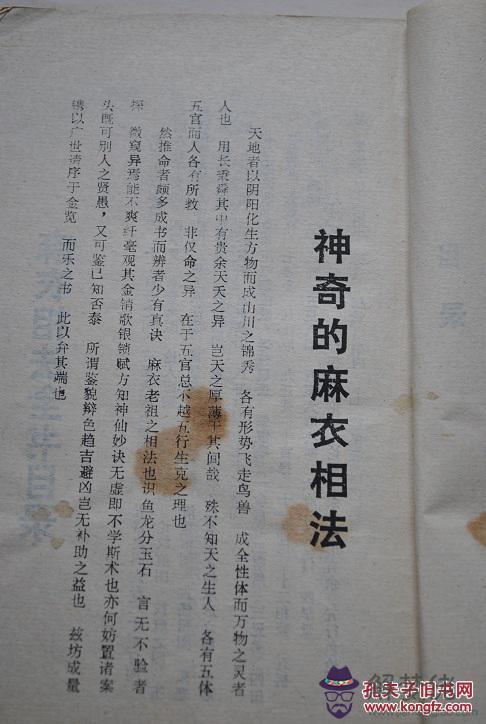 神奇的麻衣相法
天地者以阴阳化生万物而成山川之锦秀 各有形势飞走鸟兽 成全性体而万物之灵者
人也 用长秉舜其中有贵余天夭之异 岂天之厚薄于其间哉 殊不知天之生人 各有五体
五官而人各有所教 非仅命之异 在于五官总不越五行生克之理也
然推命者颇多成书而辨者少有真诀 麻衣老祖之相法也识鱼龙分玉石 言无不验者
探 微窥异焉能不爽纤毫观其金锁歌银锁赋方知神仙妙诀无虚即不学斯术也亦何妨置诸案
头既可别人之贤愚，又可鉴已知否泰 所谓鉴貌辩色趋吉避凶岂无补助之益也 兹坊成量
以广世请序于金览 而乐之书 此以弁其端也
解梦佬
jiemenglao.com
孔夫子旧书网
kongfz.com